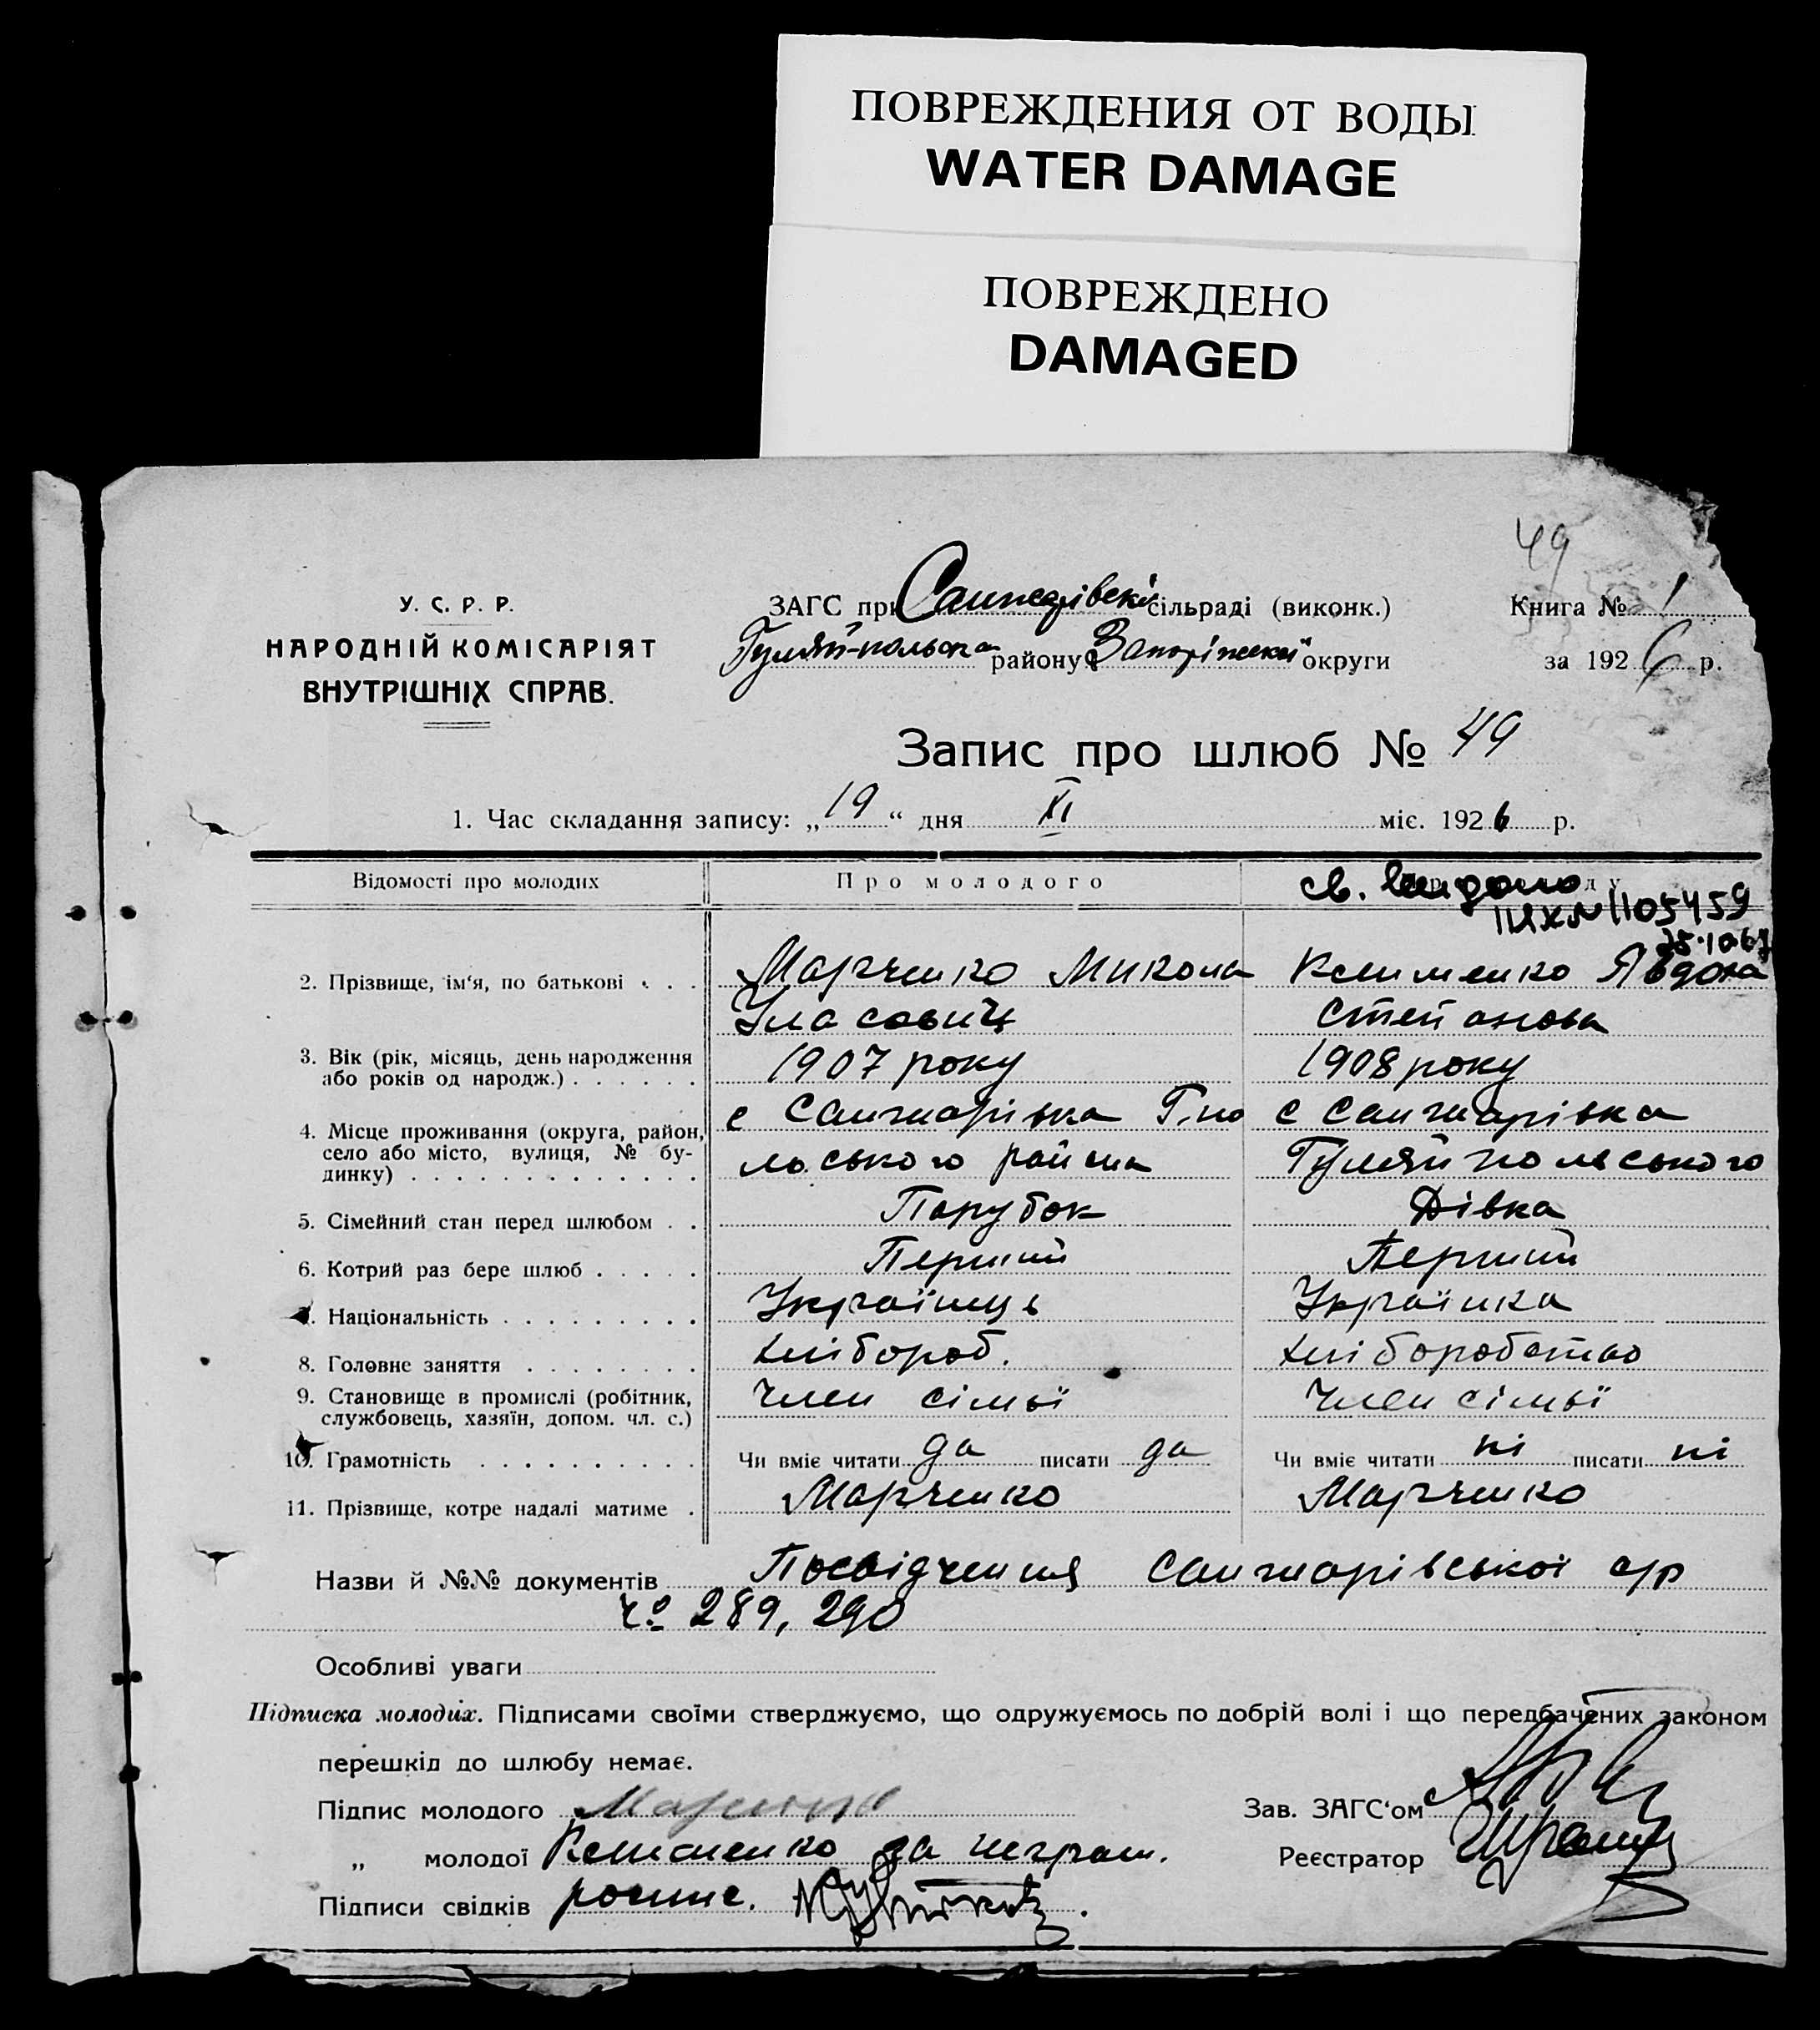 ПОВРЕЖДЕНИЯ ОТ ВОДЫ
WATER DAMAGE
ПОВРЕЖДЕНО
DAMAGED
49
У. С. Р. Р.
НАРОДНІЙ КОМІСАРІЯТ
ВНУТРІШНІХ СПРАВ.
ЗАГС при Санжарівські сільраді (виконк.)
Гуляй-польськ району Запоріжської округи
Книга № 1
за 1926 р.
Запис про шлюб № 49
1. Час складання запису: „19“ дня XI міс. 1926 р.
Відомості про молодих
Про молодого
св. выдано
ІІЯХ № 1105459
25.10.67
2. Прізвище, ім‘я, по батькові . . . Марченко Микола Клименко Явдоха
Уласович Степанова
3. Вік (рік, місяць, день народження
або років од народж.) . . . . . . 1907 року 1908 року
4. Місце проживання (округа, район,
село або місто, вулиця, № бу-
динку) . . . . . . . . . . . . .
с Санжарівка Г.по с Санжарівка
льського района Гуляйпольського
5. Сімейний стан перед шлюбом . . Парубок Дівка
6. Котрий раз бере шлюб . . . . . Перший Перший
7. Національність . . . . . . . . . Українець Українка
8. Головне заняття . . . . . . . . Хлібороб. Хліборобство
9. Становище в промислі (робітник,
службовець, хазяїн, допом. чл. с.) Член сімьї Член сімьї
10. Грамотність . . . . . . . . . . Чи вміє читати да писати да Чи вміє читати ні писати ні
11. Прізвище, котре надалі матиме . Марченко Марченко
Назви й №№ документів Посвідчення Санжарівської с/р
ч० 289, 290
Особливі уваги
Підписка молодих. Підписами своїми стверджуємо, що одружуємось по добрій волі і що передбачених законом
перешкід до шлюбу немає.
Підпис молодого Марченко
Зав. ЗАГС‘ом
„ молодої Клименко за неграм.
Реєстратор
Підписи свідків роспис.